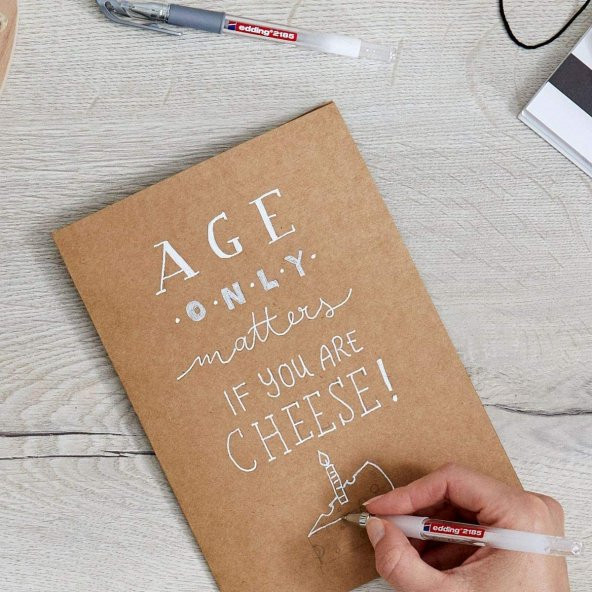 edding 2185
AGE
·O·N·L·Y·
matters
IF YOU ARE
CHEESE!
edding 2185